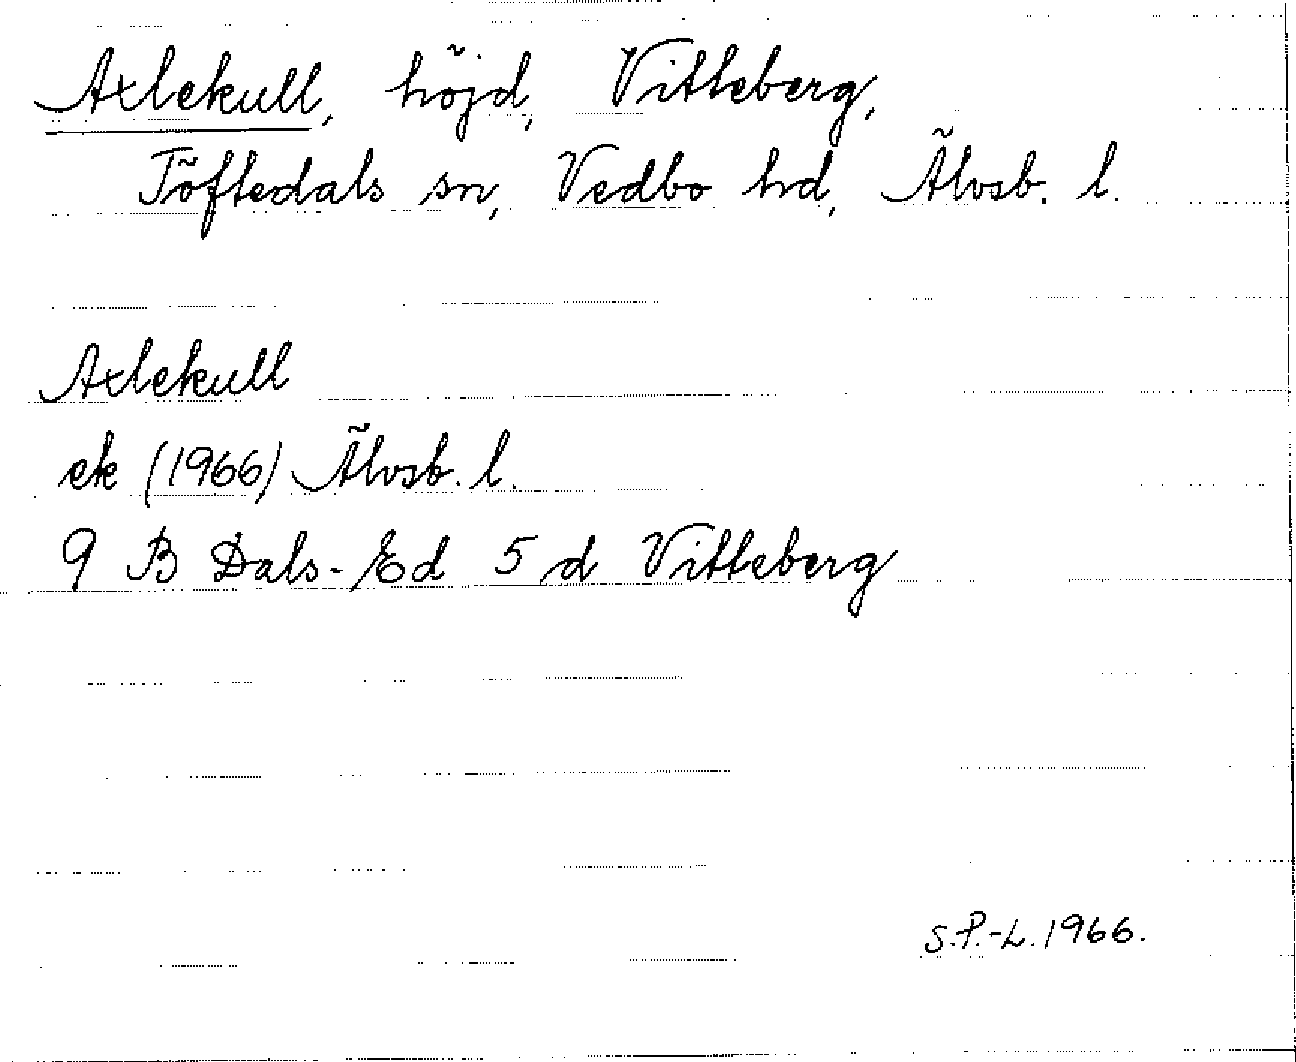 Axlekull, höjd, Vitleberg,
Töftedals sn, Vedbo hd, Älvsb. l.
Axlekull
ek (1966) Älvsb. l.
9 B Dals-Ed 5 d Vitleberg
S.P.-L. 1966.